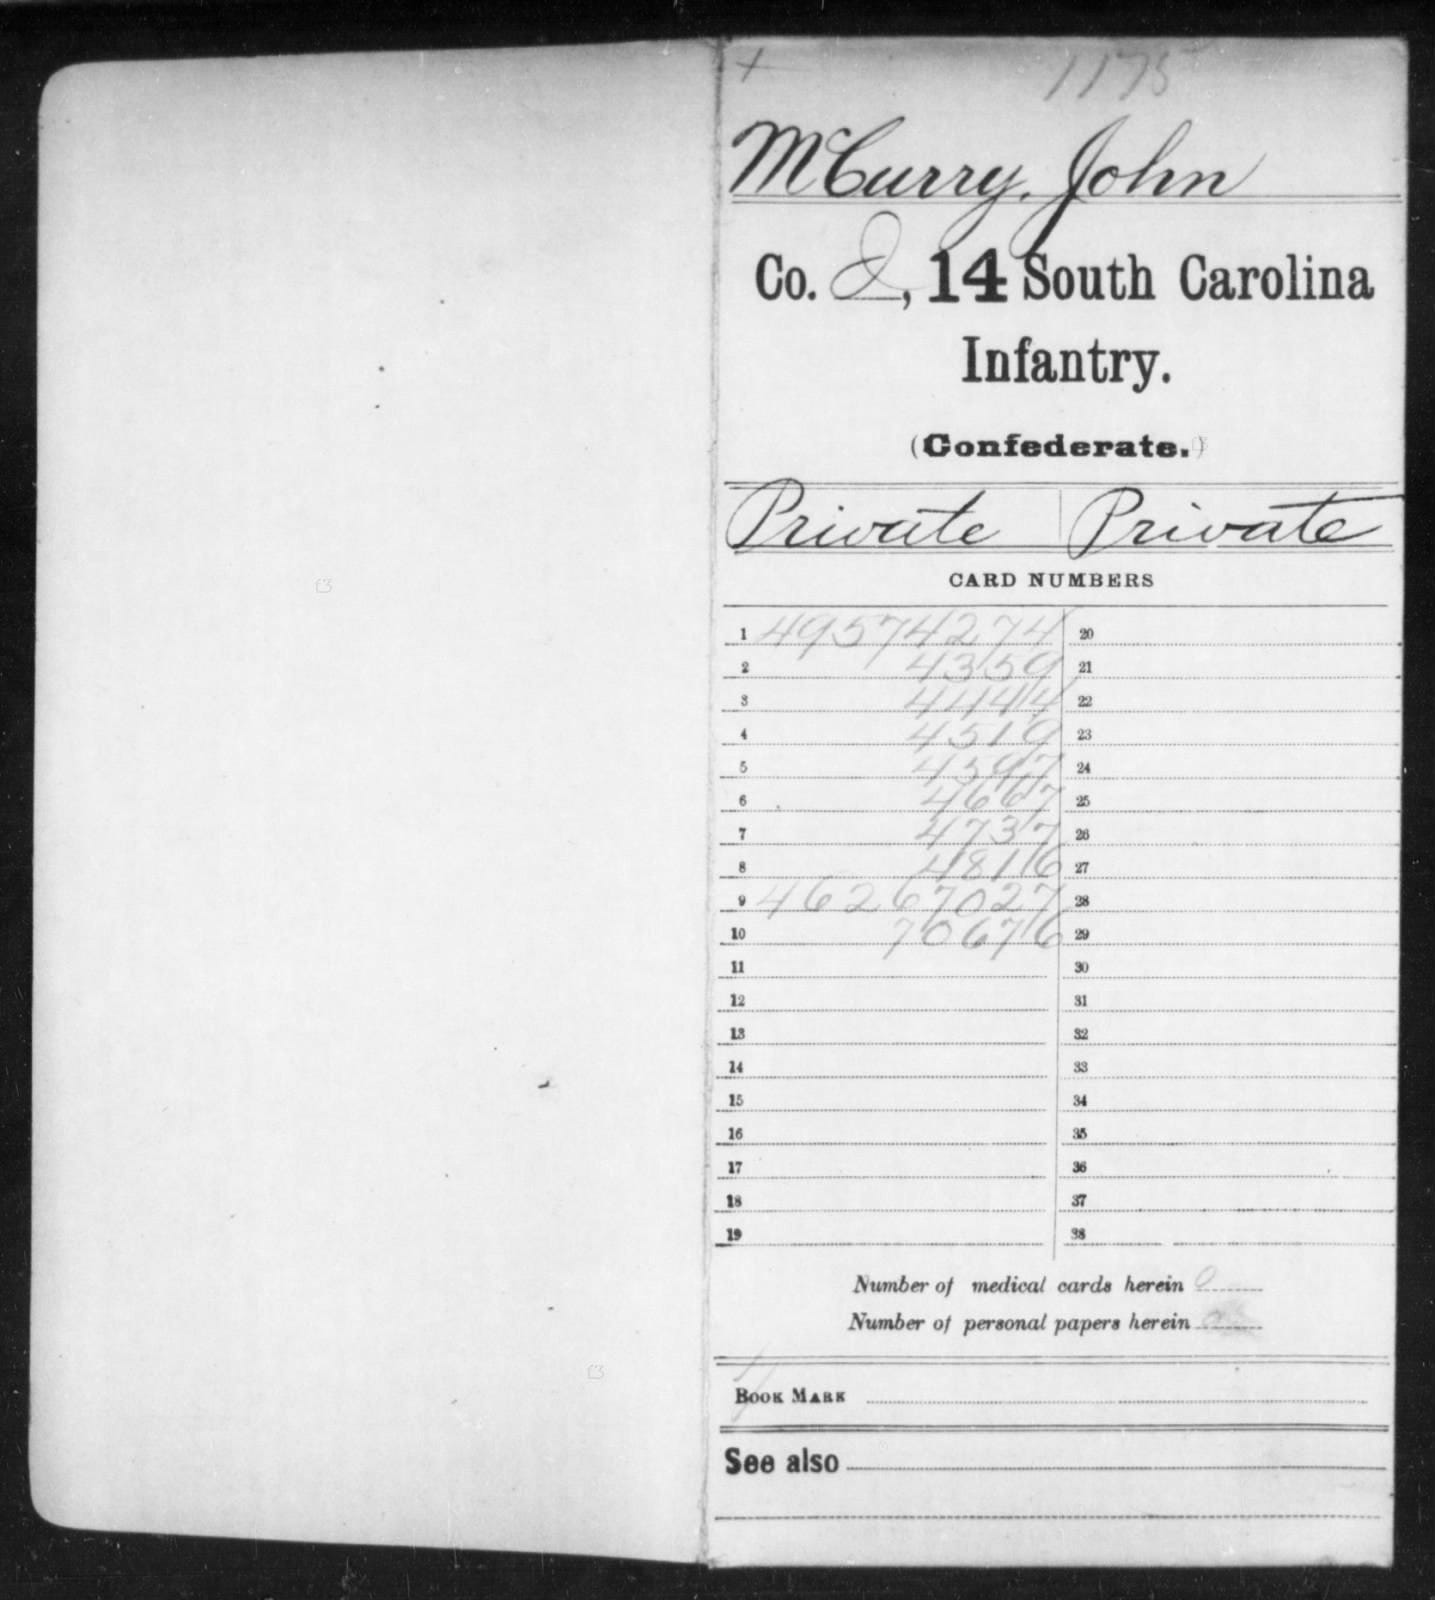 1175
McCurry, John
Co. I, 14 South Carolina
Infantry.
(Confederate.)
Private Private
CARD NUMBERS
1 49574274 20
2 4359 21
3 4444 22
4 4519 23
5 4597 24
6 4667 25
7 4737 26
8 4816 27
9 46267027 28
10 70676 29
11 30
12 31
13 32
14 33
15 34
16 35
17 36
18 37
19 38
Number of medical cards herein 0
Number of personal papers herein 0
BOOK MARK
See also